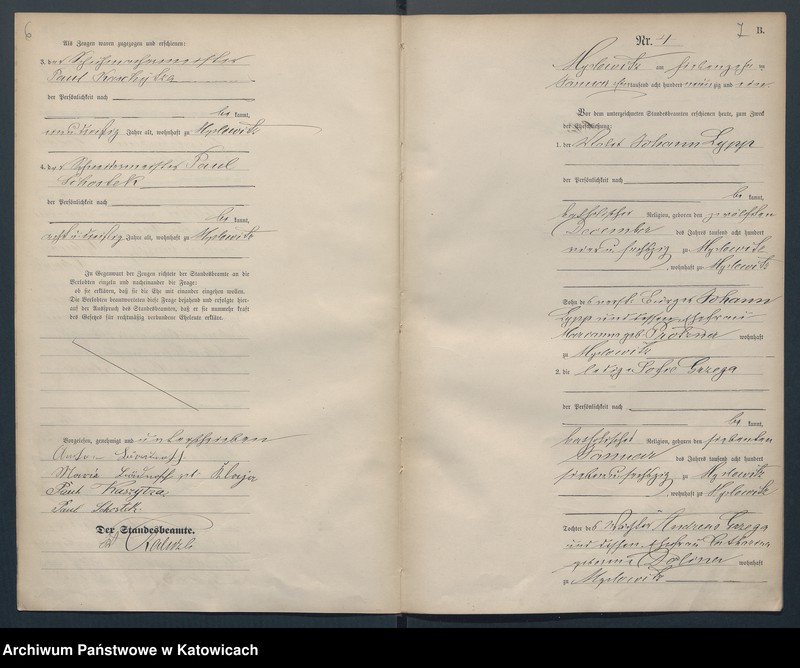 6
Als Zeugen waren zugezogen und erschienen:
3. der Schuhmachermeister
Paul Kaschytza
der Persönlichkeit nach
be kannt,
Jahre alt, wohnhaft zu Myslowitz
4. der Schneidermeister Paul
Schostek
der Persönlichkeit nach
be kannt,
acht u dreißig Jahre alt, wohnhaft zu Myslowitz
In Gegenwart der Zeugen richtete der Standesbeamte an die
Verlobten einzeln und nacheinander die Frage:
ob sie erklären, daß sie die Ehe mit einander eingehen wollen.
Die Verlobten beantworteten diese Frage bejahend und erfolgte hier-
auf der Ausspruch des Standesbeamten, daß er sie nunmehr kraft
des Gesetzes für rechtmäßig verbundene Eheleute erkläre.
Vorgelesen, genehmigt und unterschrieben
Anton
Maria geb. Kloza
Paul Kaszytza
Paul Schostek
Der Standesbeamte.
7 B.
Nr. 4
Myslowitz am siebenzehn
Januar tausend acht hundert neunzig und ein
Vor dem unterzeichneten Standesbeamten erschienen heute, zum Zweck
der Eheschließung:
1. der Johann Lypp
der Persönlichkeit nach
be kannt,
katholischer Religion, geboren den zwölften
December des Jahres tausend acht hundert
vier u sechzig zu Myslowitz
, wohnhaft zu Myslowitz
Sohn des Bürger Johann
Lypp und dessen Ehefrau
Marianna geb. wohnhaft
zu Myslowitz
2. die ledige Sofie Grzega
der Persönlichkeit nach
be kannt,
katholischer Religion, geboren den siebenten
Januar des Jahres tausend acht hundert
sieben u sechzig zu Myslowitz
, wohnhaft zu Myslowitz
Tochter des Wächter Andreas Grzega
und dessen Ehefrau Catharina
geborene wohnhaft
zu Myslowitz
Archiwum Państwowe w Katowicach